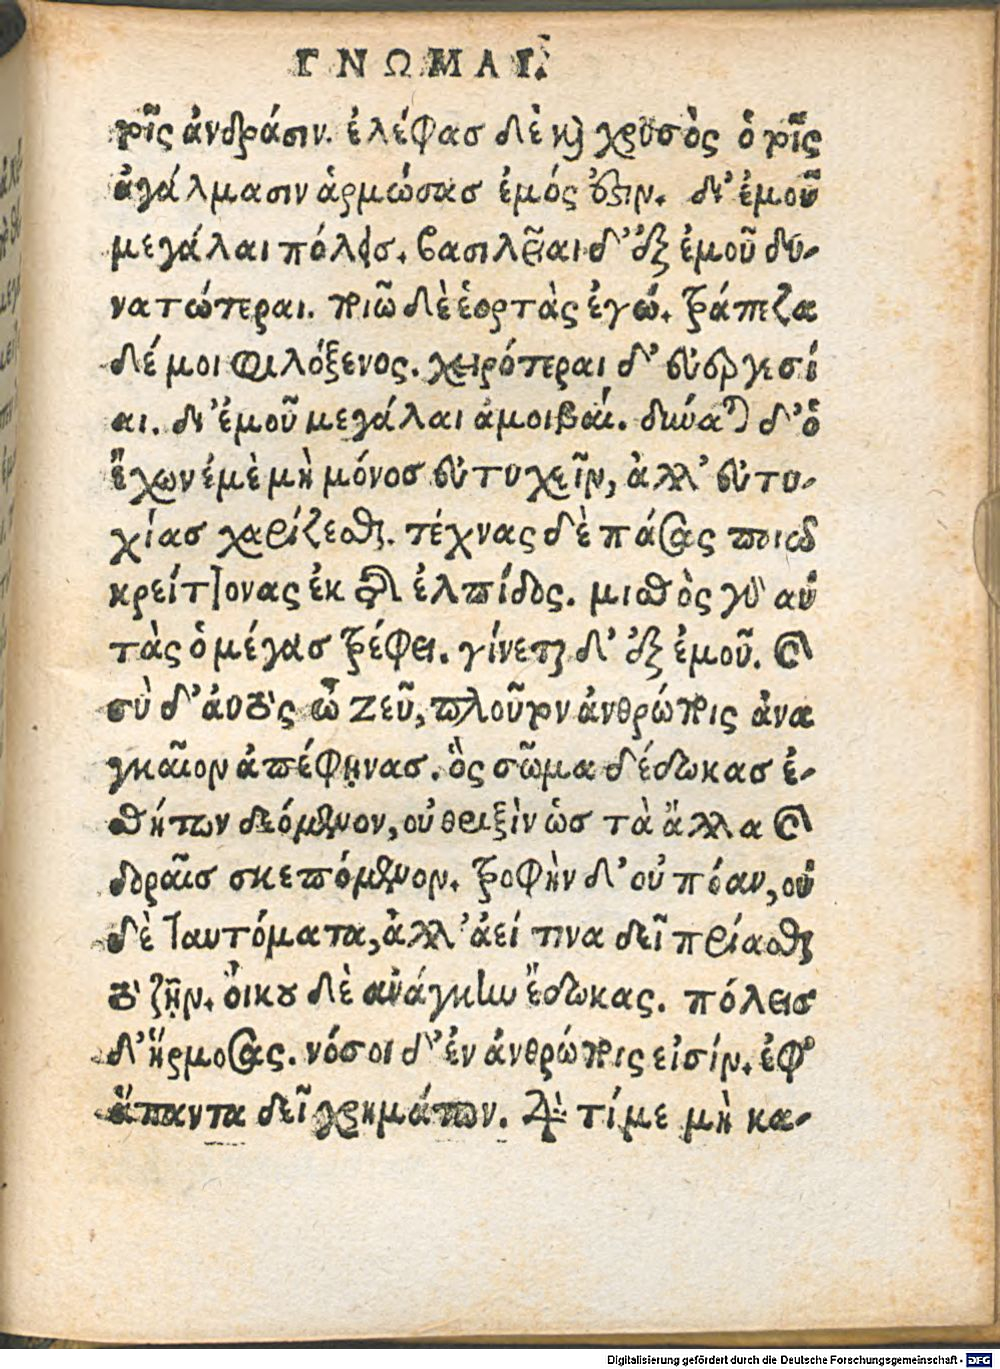 ΓΝΩΜΑΙ.
ροῖς ἀνδράσιν. ἐλέφας δὲ καὶ χρυσὸς ὁ τοῖς
ἀγάλμασιν ἁρμώσας ἐμός ὅστιν. δι' ἐμοῦ
μεγάλαι πόλεις. βασιλεῖαι δ' ἐξ ἐμοῦ δυ-
νατώτεραι. ποιῶ δὲ ἑορτὰς ἐγώ. τράπεζα
δέ μοι φιλόξενος. χειρότεραι δ' εὐεργεσί
αι. δι' ἐμοῦ μεγάλαι ἀμοιβαί. δύναται δ' ὁ
ἔχων ἐμὲ μὴ μόνος εὐτυχεῖν, ἀλλ' εὐτυ-
χίας χαρίζεσθαι. τέχνας δὲ πάσας ποιῶ
κρείττονας ἐκ τῆς ἐλπίδος. μισθὸς γὰρ αὐ
τὰς ὁ μέγας τρέφει. γίνεται δ' ἐξ ἐμοῦ.
σὺ δ' αὐτὸς ὦ Ζεῦ, πλοῦτον ἀνθρώποις ἀνα
γκαῖον ἀπέφηνας. ὃς σῶμα δέδωκας ἐ-
σθήτων δεόμενον, οὐ θριξὶν ὡς τὰ ἄλλα
δοραῖς σκεπόμενον. τροφὴν δ' οὐ πόαν, οὐ
δὲ ταυτόματα, ἀλλ' ἀεί τινα δεῖ πρίασθαι
τὸ ζῆν. οἴκου δὲ ἀνάγκην ἔδωκας. πόλεις
δ' ἥρμοσας. νόσοι δ' ἐν ἀνθρώποις εἰσίν. ἐφ'
ἅπαντα δεῖ χρημάτων. Διὰ τί με μὴ κα-
Digitalisierung gefördert durch die Deutsche Forschungsgemeinschaft - DFG